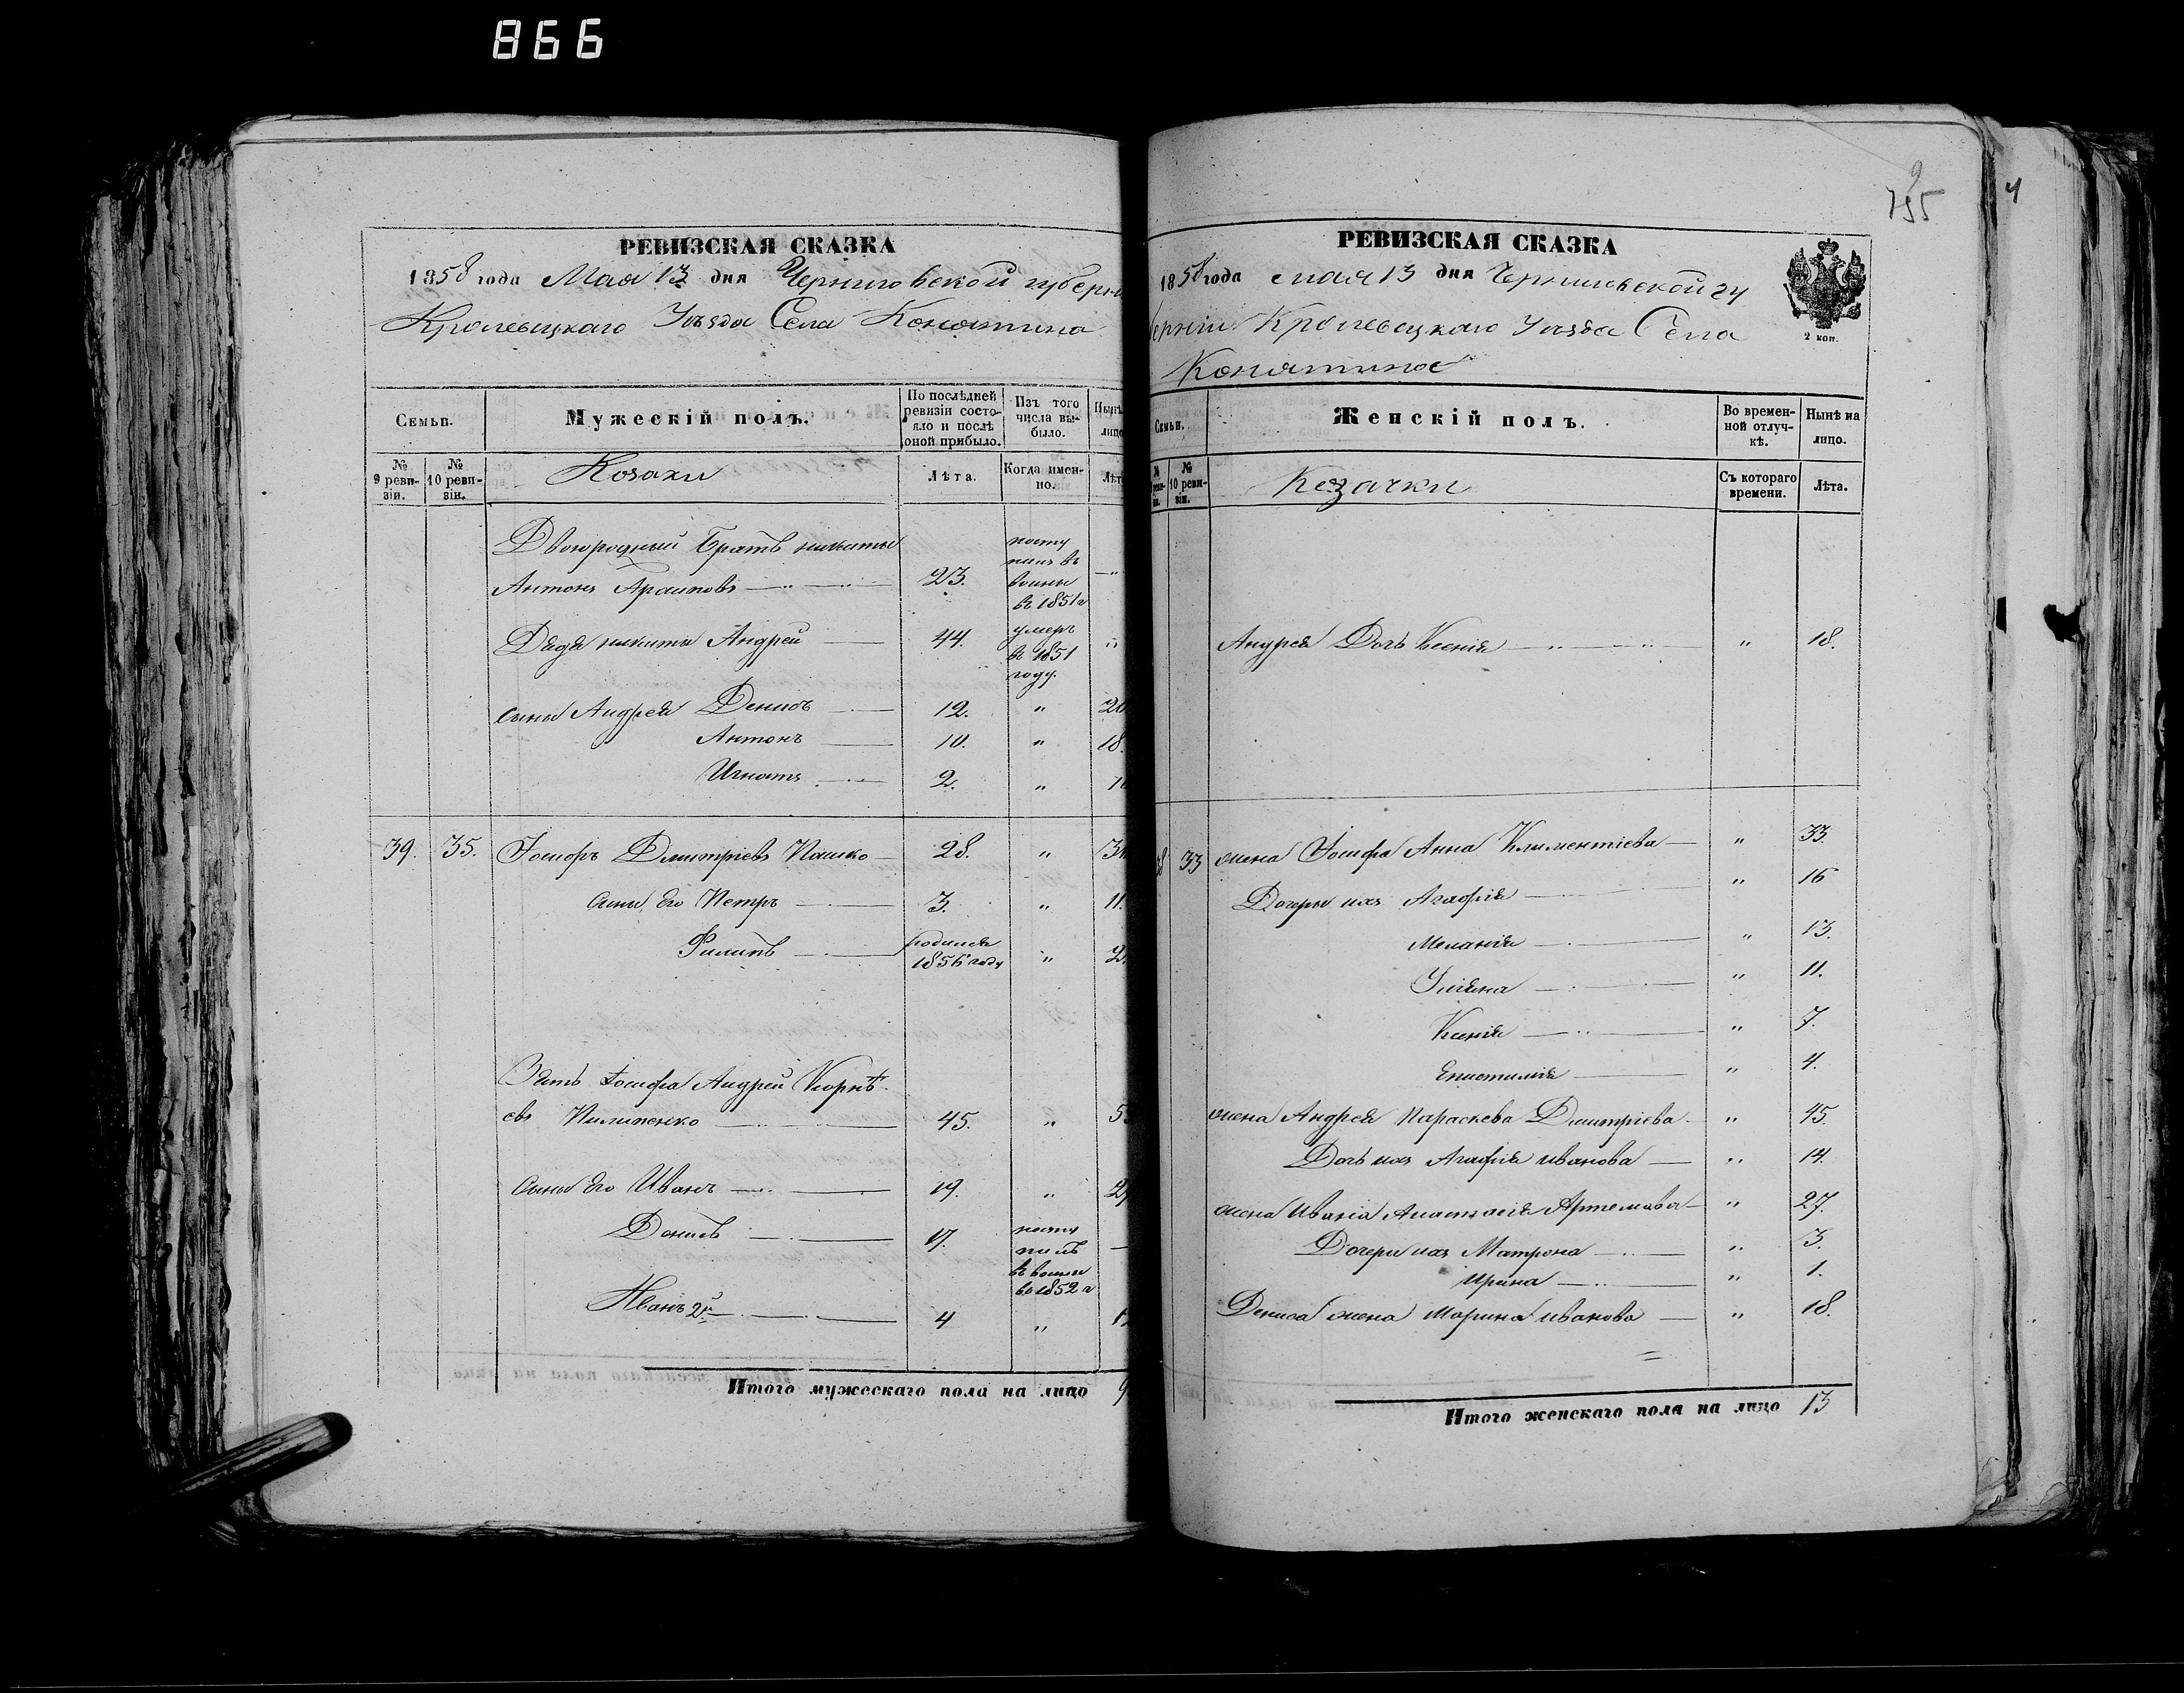 866
РЕВИЗСКАЯ СКАЗКА
1858 года Мая 13 дня Черниговской губерн
Кролевецкаго Уѣзда Села Конятина
Семьи.
Мужескій полъ.
По послѣдней ревизіи состояло и послѣ оной прибыло.
Изъ того числа выбыло.
Нынѣ
лицо
№ 9 ревизіи.
№ 10 ревизіи.
Козаки
Лѣта.
Когда именно.
Лѣт
Двоюродный Братъ никиты
Антонъ 23. посту пилъ въ воины въ 1851 г
Дядя никиты Андрей 44. умеръ въ 1851 году
сыны Андрея Денисъ 12. " 20
Антонъ 10. " 18.
Игнатъ 2. " 1
39. 35. Іосифъ Дмитріевъ Пашко 28. " 3
сыны его Петръ 3. " 11.
Филипъ родился 1856 году " 2.
Зять Іосифа Андрей Корнѣ
евъ Пилипенко 45. " 5
Сыны его Иванъ 19. " 2
Денисъ 17. посту пилъ въ воины въ 1852 г
Иванъ 2й 4 " 1
Итого мужескаго пола на лицо 9
755
РЕВИЗСКАЯ СКАЗКА
1858 года мая 13 дня Черниговской гу
берніи Кролевецкаго Уѣзда Села
Конятина
2 коп.
Семьи.
Женскій полъ.
Во временной отлучкѣ.
Нынѣ на лицо.
№ 10 ревизіи.
Козачки
Съ котораго времени.
Лѣта.
Андрея Дочь Ксенія " 18.
8 33 жена Іосифа Анна Климентіева " 33.
Дочери ихъ Агафія " 16
Меланія " 13.
Уліяна " 11.
Ксенія " 7.
Епистимія " 4.
жена Андрея Параскева Дмитріева " 45.
Дочь ихъ Агафія иванова " 14.
жена Ивана Анастасія Артемова " 27.
Дочери ихъ Матрона " 3.
Ирина " 1.
Дениса жена Марина иванова " 18.
Итого женскаго пола на лицо 13